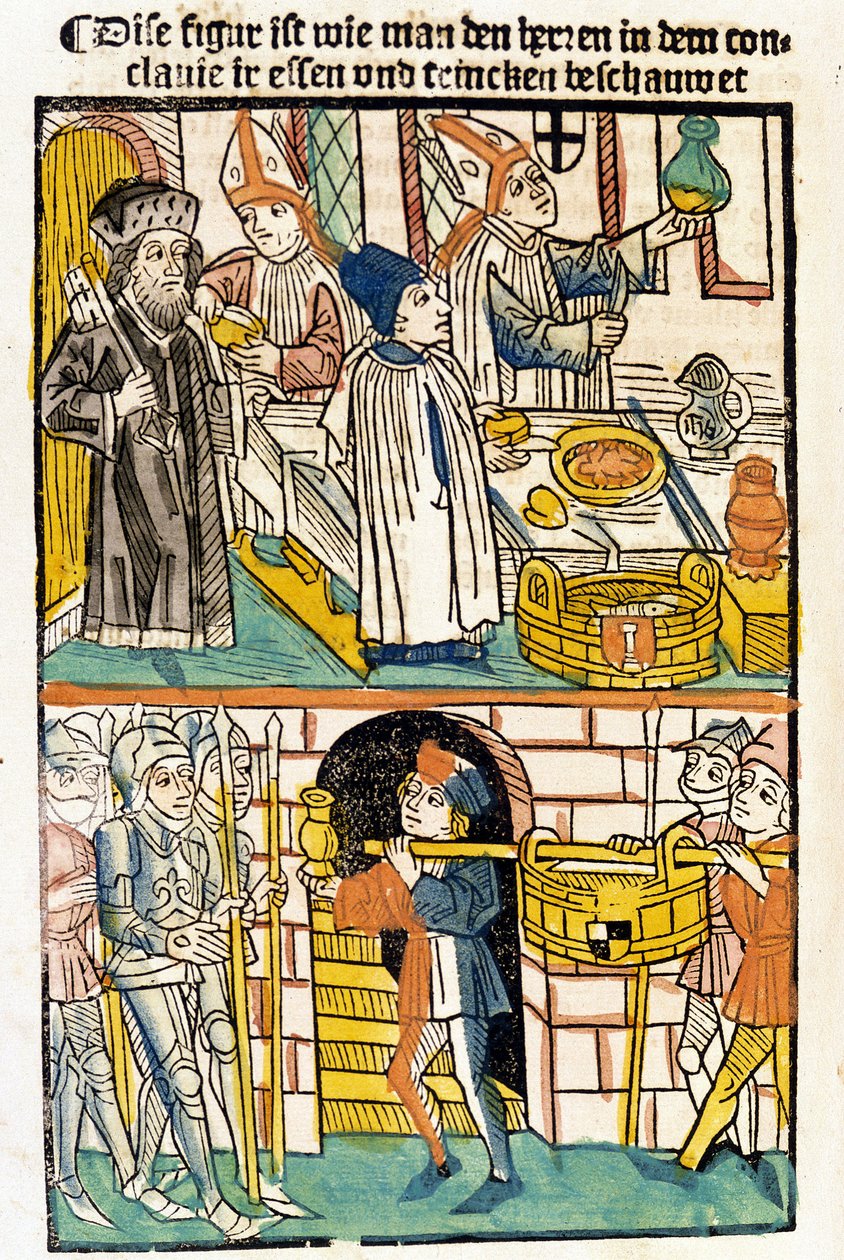 ¶ Dise figur ist wie man den herren in dem con⸗
clauie ir essen vnd trincken beschauwet